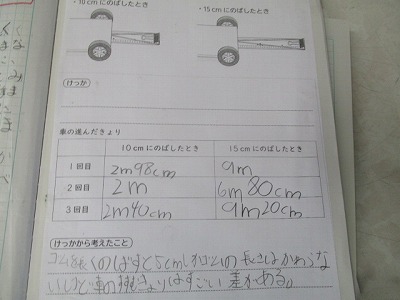 ・10cmにのばしたとき ・15cmにのばしたとき
けっか
車の進んだきょり
10cmにのばしたとき 15cmにのばしたとき
1回目 2m98cm 9m
2回目 2m 6m80cm
3回目 2m40cm 9m20cm
けっかから考えたこと
ゴムを長くのばすと5cmしかゴムの長さはかわらな
いけど車の進むきょりはすごい差がある。